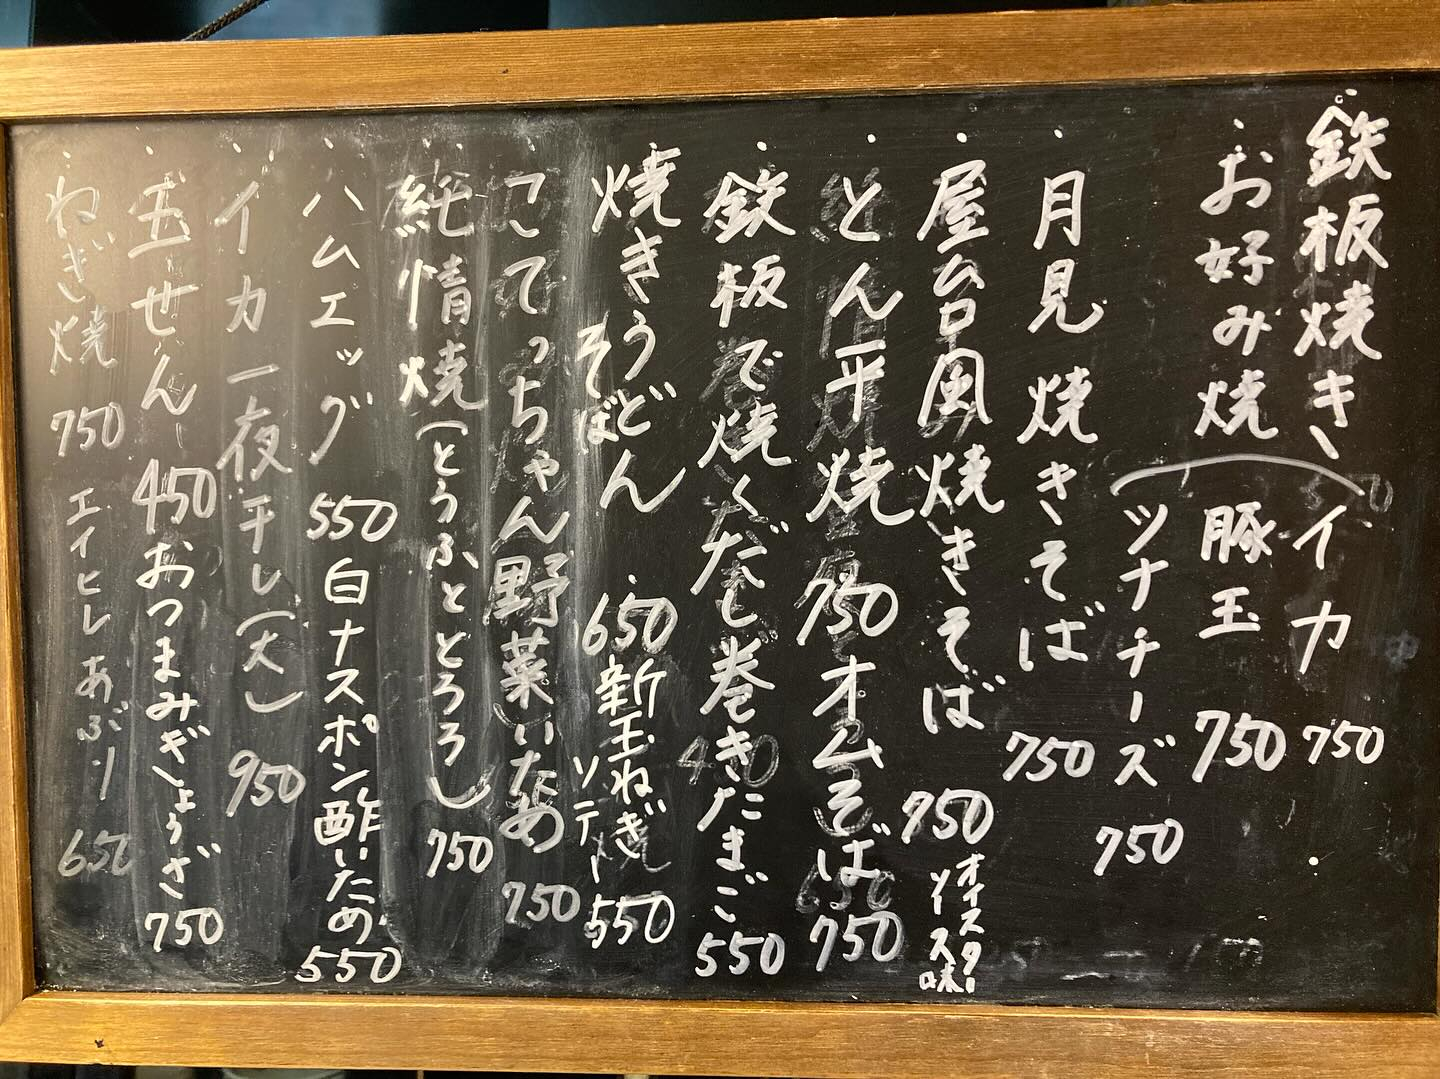 鉄板焼き イカ 750
お好み焼 豚玉 750
ツナチーズ 750
月見焼きそば 750
屋台風焼きそば 750 オイスターソース味
とん平焼 750 オムそば 750
鉄板で焼くだし巻きたまご 550
焼きうどん そば 650 新玉ねぎソテー 550
こてっちゃん野菜いため 750
純情焼(とうふととろろ) 750
ハムエッグ 550 白ナスポン酢いため 550
イカ一夜干し(大) 950
玉せん 450 おつまみぎょうざ 750
ねぎ焼 750 エイヒレあぶり 650